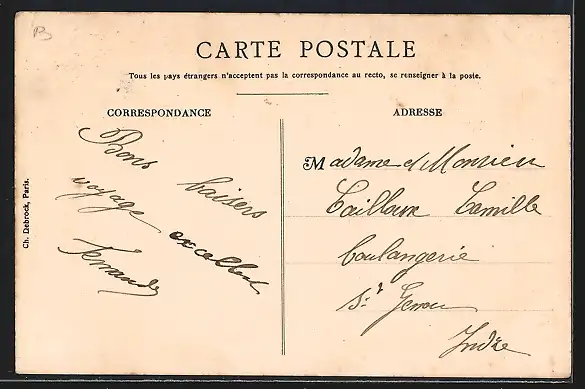 B
CARTE POSTALE
Tous les pays étrangers n'acceptent pas la correspondance au recto, se renseigner à la poste.
CORRESPONDANCE
Bons baisers
voyage excellent
Fernande
ADRESSE
Madame et Monsieur
Tailloux Camille
boulangerie
St Genou
Indre
Ch. Debrock, Paris.